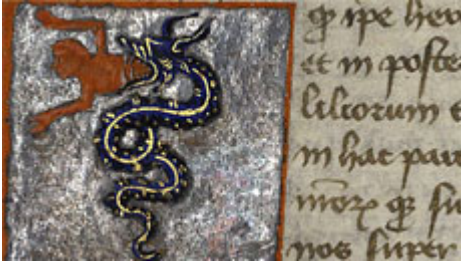 ꝙ ipe her
et in poste
liliorum e
in hac part
morꝝ ꝙ su
nos super